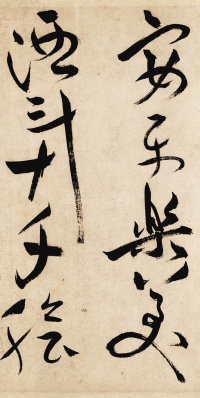 宴平樂美
酒斗十千膾